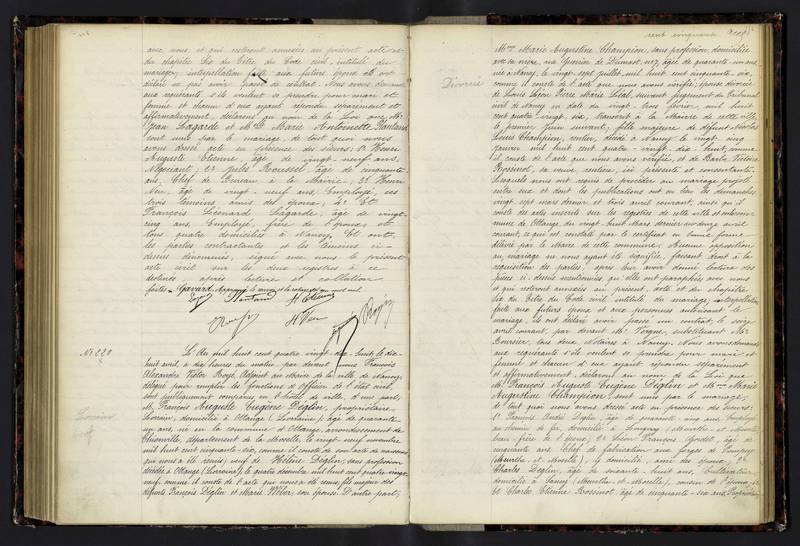 avec nous et qui resteront annexées au présent acte et
du chapitre six du titre du Code civil intitulé du
mariage, interpellation faite aux futurs époux ils ont
déclaré ne pas avoir passé de contrat. Nous avons demandé
aux requérants s'ils veulent se prendre pour mari et
femme et chacun d'eux ayant répondu séparément et
affirmativement, déclarons au nom de la Loi que M.
Jean Lagarde et Melle Marie Antoinette
sont unis par le mariage, de tout quoi nous
avons dressé acte en présence des sieurs: 1° Henri
Auguste Etienne, âgé de vingt-neuf ans,
Négociant, 2° Jules Roussel, âgé de cinquante
ans, Chef de Bureau à la Mairie, 3° Henri
Neu, âgé de vingt-neuf ans, Employé, ces
trois témoins, amis des époux; 4° Et
François Léonard Lagarde, âgé de vingt-
cinq ans, Employé, frère de l'époux et
tous quatre domiciliés à Nancy, Et ont
les parties contractantes et les témoins ci-
dessus dénommés, signé avec nous le présent
acte écrit sur les deux registres à ce
destinés après lecture et collation
faites.
H Etienne
H Neu
N° 220
L'An mil huit cent quatre vingt-dix-huit, le dix-
huit avril, à dix heures du matin, par devant nous François
Alexandre Boyé, Adjoint au Maire de la ville de Nancy,
délégué pour remplir les fonctions d'Officier de l'état civil,
sont publiquement comparus en l'hôtel de ville, d'une part,
M. François Auguste Eugène Déglin, propriétaire-
domicilié à Ottange (Lorraine), âgé de quarante-
un ans, né en la commune d'Ottange, arrondissement de
Thionville, département de la Moselle, le vingt-neuf novembre
mil huit cent cinquante-six, comme il conste de son acte de naissance
qui nous a été remis; veuf de Hélène Déglin, sans profession
décédée à Ottange (Lorraine), le quatre décembre mil huit cent quatre vingt-
neuf, comme il conste de l'acte qui nous a été remis; fils majeur des
défunts François Déglin et Marie Weber, son épouse. D'autre part,
cent cinquante
Divorcée
Mme Marie Augustine Champion, sans profession, domiciliée
avec sa mère, rue Grandville, 27, âgée de quarante-un ans,
née à Nancy, le vingt-sept juillet mil huit cent cinquante-six,
comme il conste de l'acte que nous avons vérifié; épouse divorcée
de Louis Eugène Pierre Marie, suivant jugement du Tribunal
civil de Nancy en date du vingt-trois février, mil huit
cent quatre vingt-six, transcrit à la Mairie de cette ville
le premier juin suivant; fille majeure de défunt Nicolas
Louis Champion, rentier, décédé à Nancy le vingt-cinq
janvier mil huit cent quatre-vingt-dix-huit, comme
il conste de l'acte que nous avons vérifié, et de Barbe Victoire
Rossinot, sa veuve, rentière, ici présente et consentante.
Lesquels nous ont requis de procéder au mariage projeté
entre eux et dont les publications ont eu lieu les dimanches
vingt-sept mars dernier et trois avril courant, ainsi qu'il
conste des actes inscrits sur les registres de cette ville et en la com-
mune de Ottange, du vingt-huit Mars dernier au onze avril
courant, ce qui est constaté par le certificat en bonne forme
délivré par le Maire de cette commune; Aucune opposition
au mariage ne nous ayant été signifiée, faisant droit à la
réquisition des parties, après leur avoir donné lecture des
pièces ci-dessus mentionnées, qu'elles ont paraphées avec nous
et qui resteront annexées au présent acte et du chapitre
six du titre du Code civil intitulé du mariage; interpellation
faite aux futurs époux et aux personnes autorisant le
mariage, ils ont déclaré avoir passé un contrat, le seize
avril courant, par devant Me Vergne, substituant Me
Boursier, tous deux Notaires à Nancy. Nous avons demandé
aux requérants s'ils veulent se prendre pour mari et
femme et chacun d'eux ayant répondu séparément
et affirmativement, déclarons au nom de la Loi que
M. François Auguste Eugène Déglin et Mme Marie
Augustine Champion, sont unis par le mariage,
de tout quoi nous avons dressé acte en présence des sieurs:
1° François André Déglin, âgé de quarante-cinq ans, Employé
au chemin de fer, domicilié à Longwy (Meurthe-et-Moselle)
beau-frère de l'époux; 2° Léon François Godet, âgé de
cinquante ans, Chef de fabrication aux forges de Pompey
(Meurthe-et-Moselle) y domicilié, ami des époux; 3°
Charles Déglin, âgé de soixante-huit ans, Cultivateur,
domicilié à Sancy (Meurthe-et-Moselle), cousin de l'époux; 4°
Et Charles Etienne Rossinot, âgé de cinquante-six ans, Propriétaire,